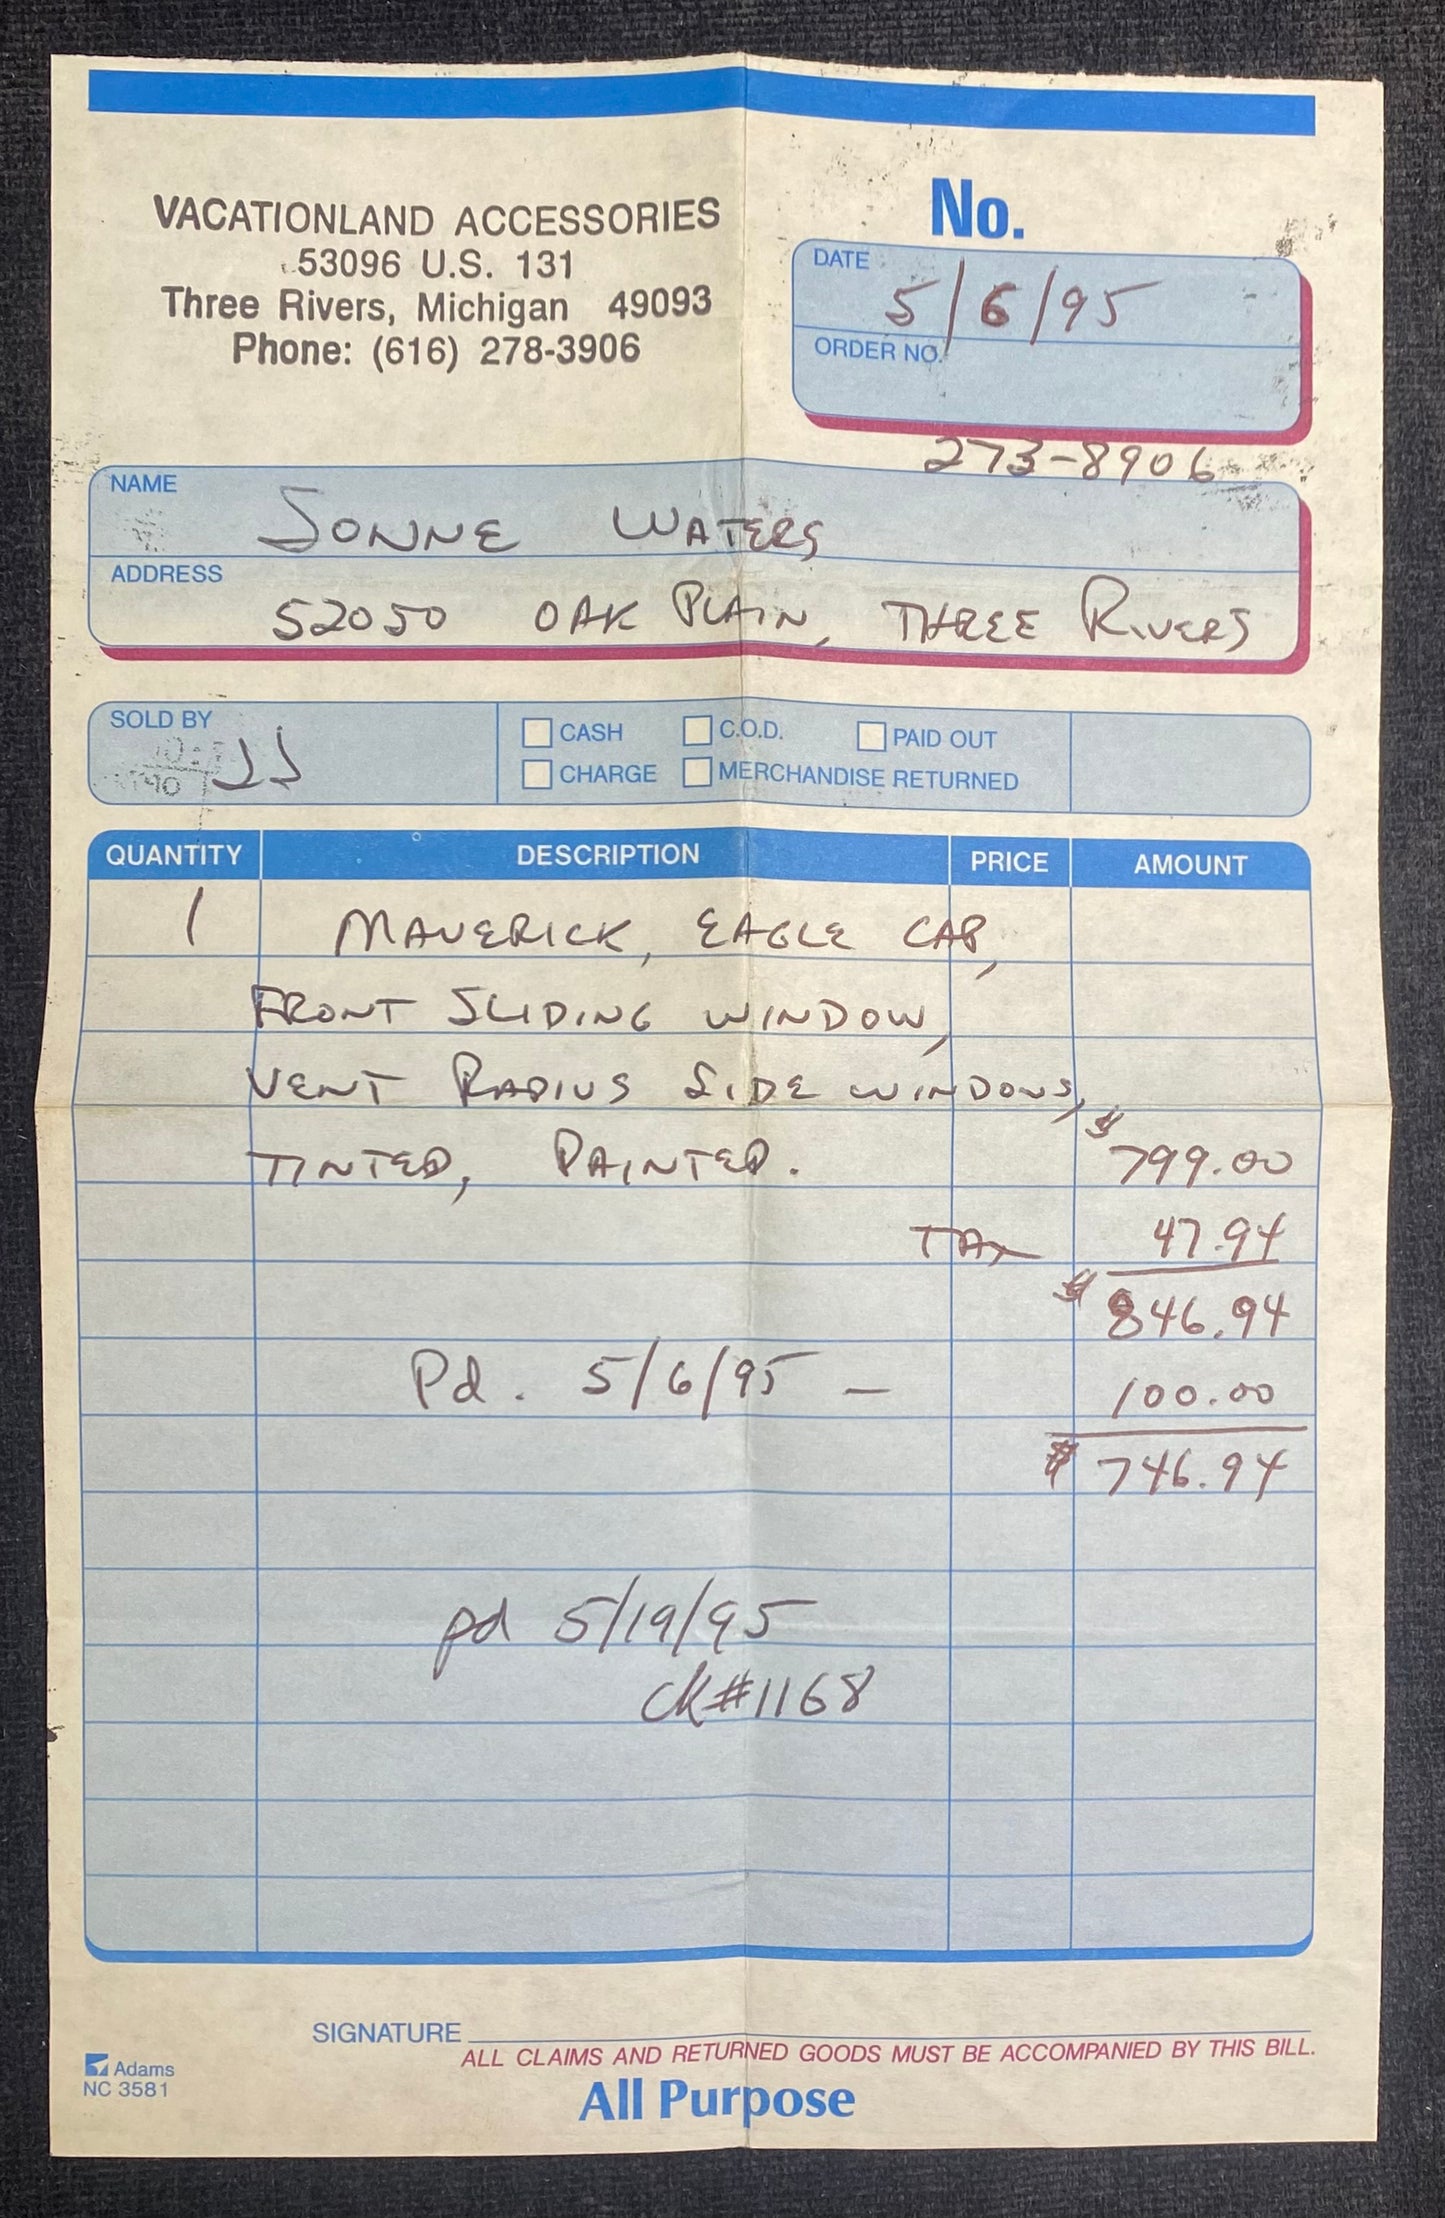 VACATIONLAND ACCESSORIES
53096 U.S. 131
Three Rivers, Michigan 49093
Phone: (616) 278-3906
No.
DATE 5/6/95
ORDER NO.
273-8906
NAME SONNE WATERS
ADDRESS 52050 OAK PLAIN, THREE RIVERS
SOLD BY JJ
CASH C.O.D. PAID OUT
CHARGE MERCHANDISE RETURNED
QUANTITY DESCRIPTION PRICE AMOUNT
1 MAVERICK, EAGLE CAP,
FRONT SLIDING WINDOW,
VENT RADIUS SIDE WINDOWS,
TINTED, PAINTED. $799.00
TAX 47.94
$846.94
Pd. 5/6/95 — 100.00
$746.94
pd 5/19/95
CK#1168
SIGNATURE
ALL CLAIMS AND RETURNED GOODS MUST BE ACCOMPANIED BY THIS BILL.
Adams
NC 3581
All Purpose